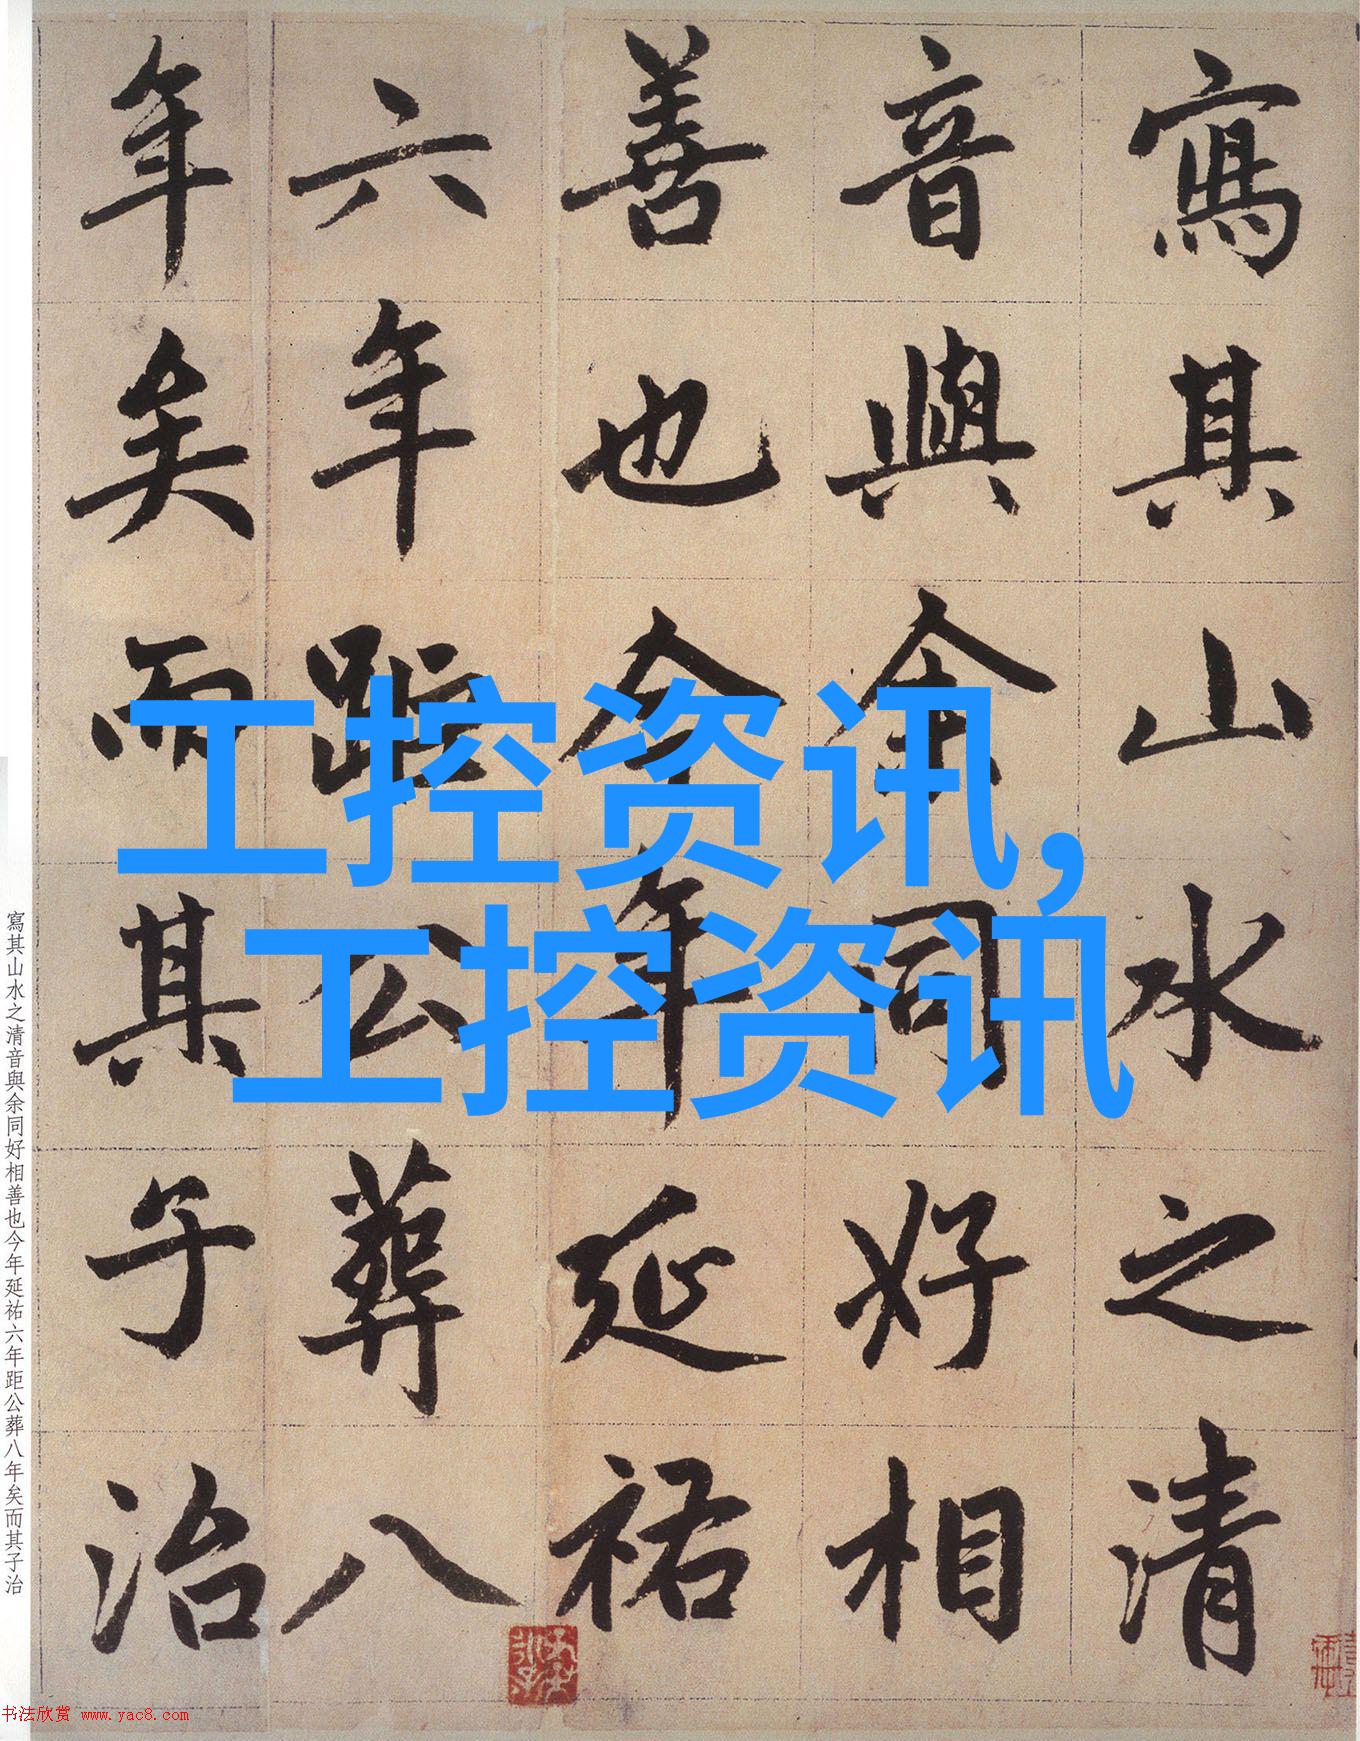 寫其山水之清
音與余同好相
善也今年延祐
六年距公葬八
年矣而其子治
工控资讯,
工控资讯
寫其山水之清音與余同好相善也今年延祐六年距公葬八年矣而其子治
书法欣赏 www.yac8.com